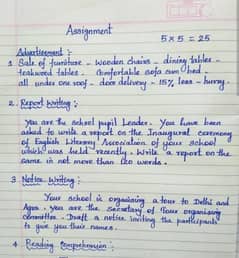 Assignment
5 x 5 = 25
Advertisement :
1 Sale of furniture - wooden chairs - dining tables -
teakwood tables. Comfortable sofa cum bed -
all under one roof - door delivery - 15% less - hurry.
2. Report Writing :
You are the school pupil Leader. You have been
asked to write a report on the Inaugural ceremony
of English Literary Association of your school
which was held recently. Write a report on the
same in not more than 120 words.
3 Notice Writing :
Your school is organising a tour to Delhi and
Agra. You are the secretary of Tour organising
committee. Draft a notice inviting the participants
to give you their names.
4 Reading Comprehension :